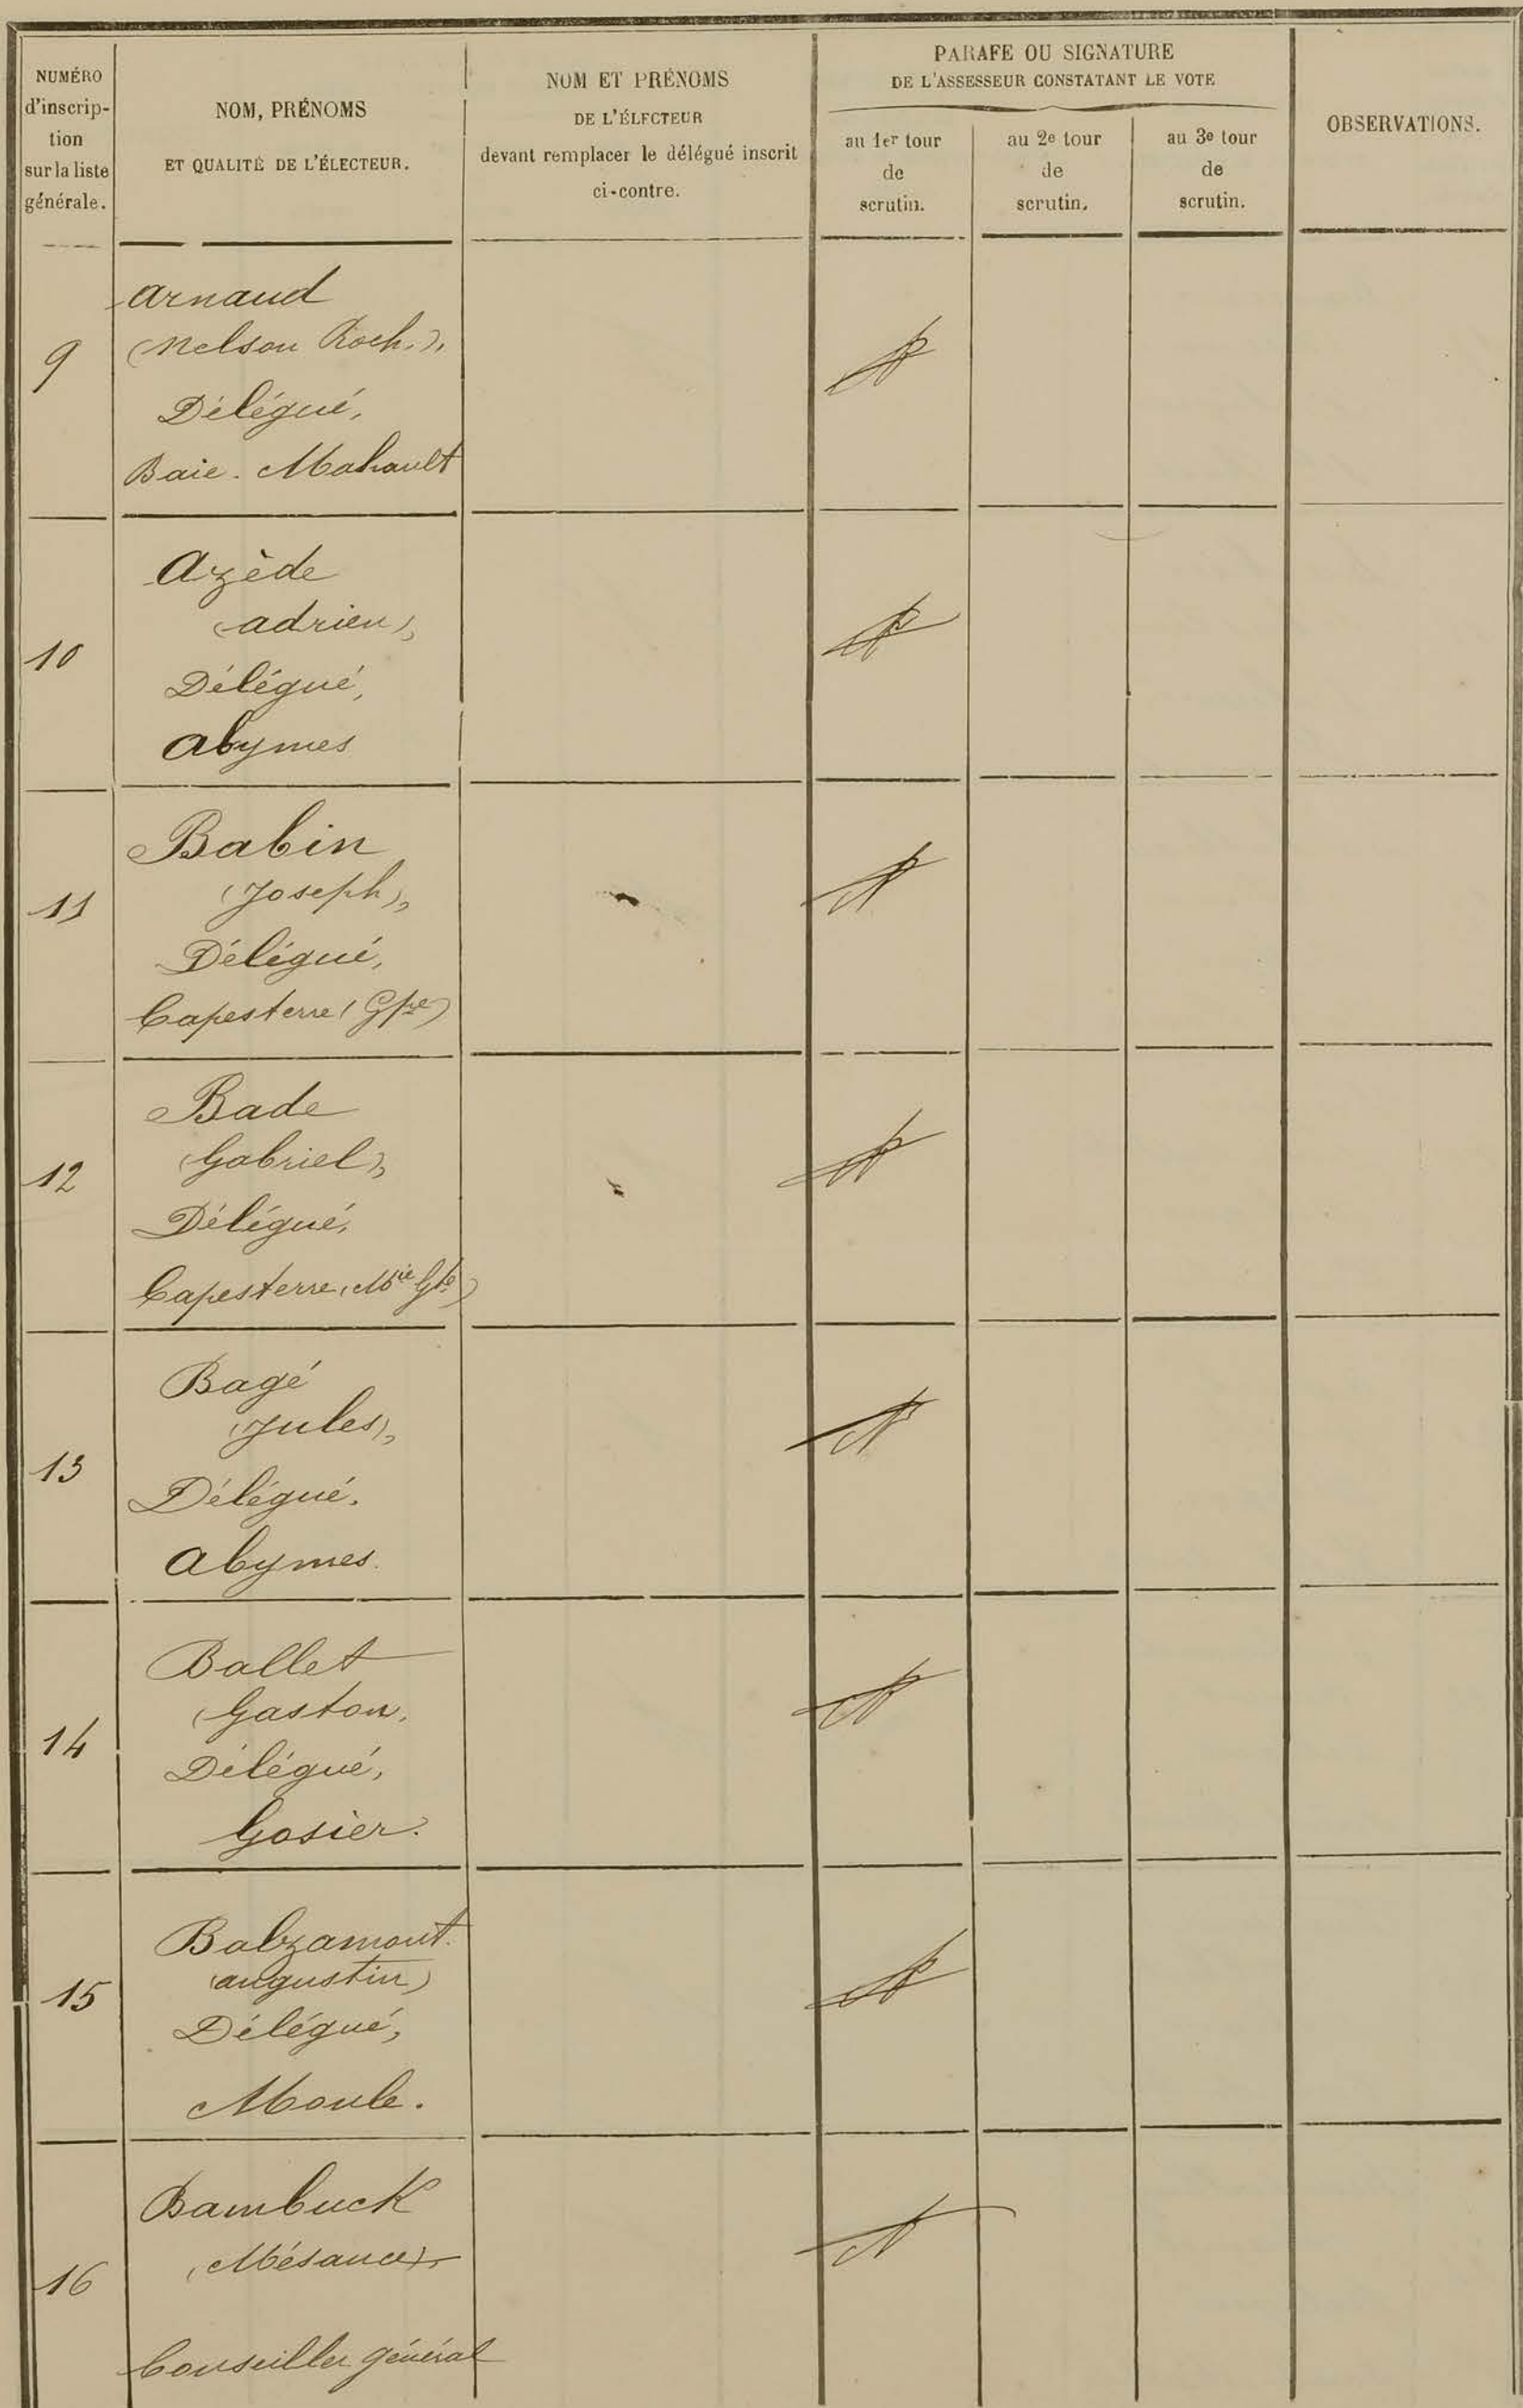 NUMÉRO
d'inscrip-
tion
sur la liste
générale.
NOM, PRÉNOMS
ET QUALITÉ DE L'ÉLECTEUR.
NOM ET PRÉNOMS
DE L'ÉLECTEUR
devant remplacer le délégué inscrit
ci-contre.
PARAFE OU SIGNATURE
DE L'ASSESSEUR CONSTATANT LE VOTE
au 1er tour
de
scrutin.
au 2e tour
de
scrutin.
au 3e tour
de
scrutin.
OBSERVATIONS.
9
Arnaud
(Nelson Roch.),
Délégué,
Baie-Mahault
10
Azède
(Adrien),
Délégué,
Abymes
11
Babin
(Joseph),
Délégué,
Capesterre (Gpe)
12
Bade
(Gabriel),
Délégué,
Capesterre (Mie Gte)
13
Bagé
(Jules),
Délégué.
Abymes.
14
Ballet
(Gaston,
Délégué,
Gosier.
15
Balzamont.
(Augustin)
Délégué,
Moule.
16
Bambuck
(Mésance),
Conseiller général